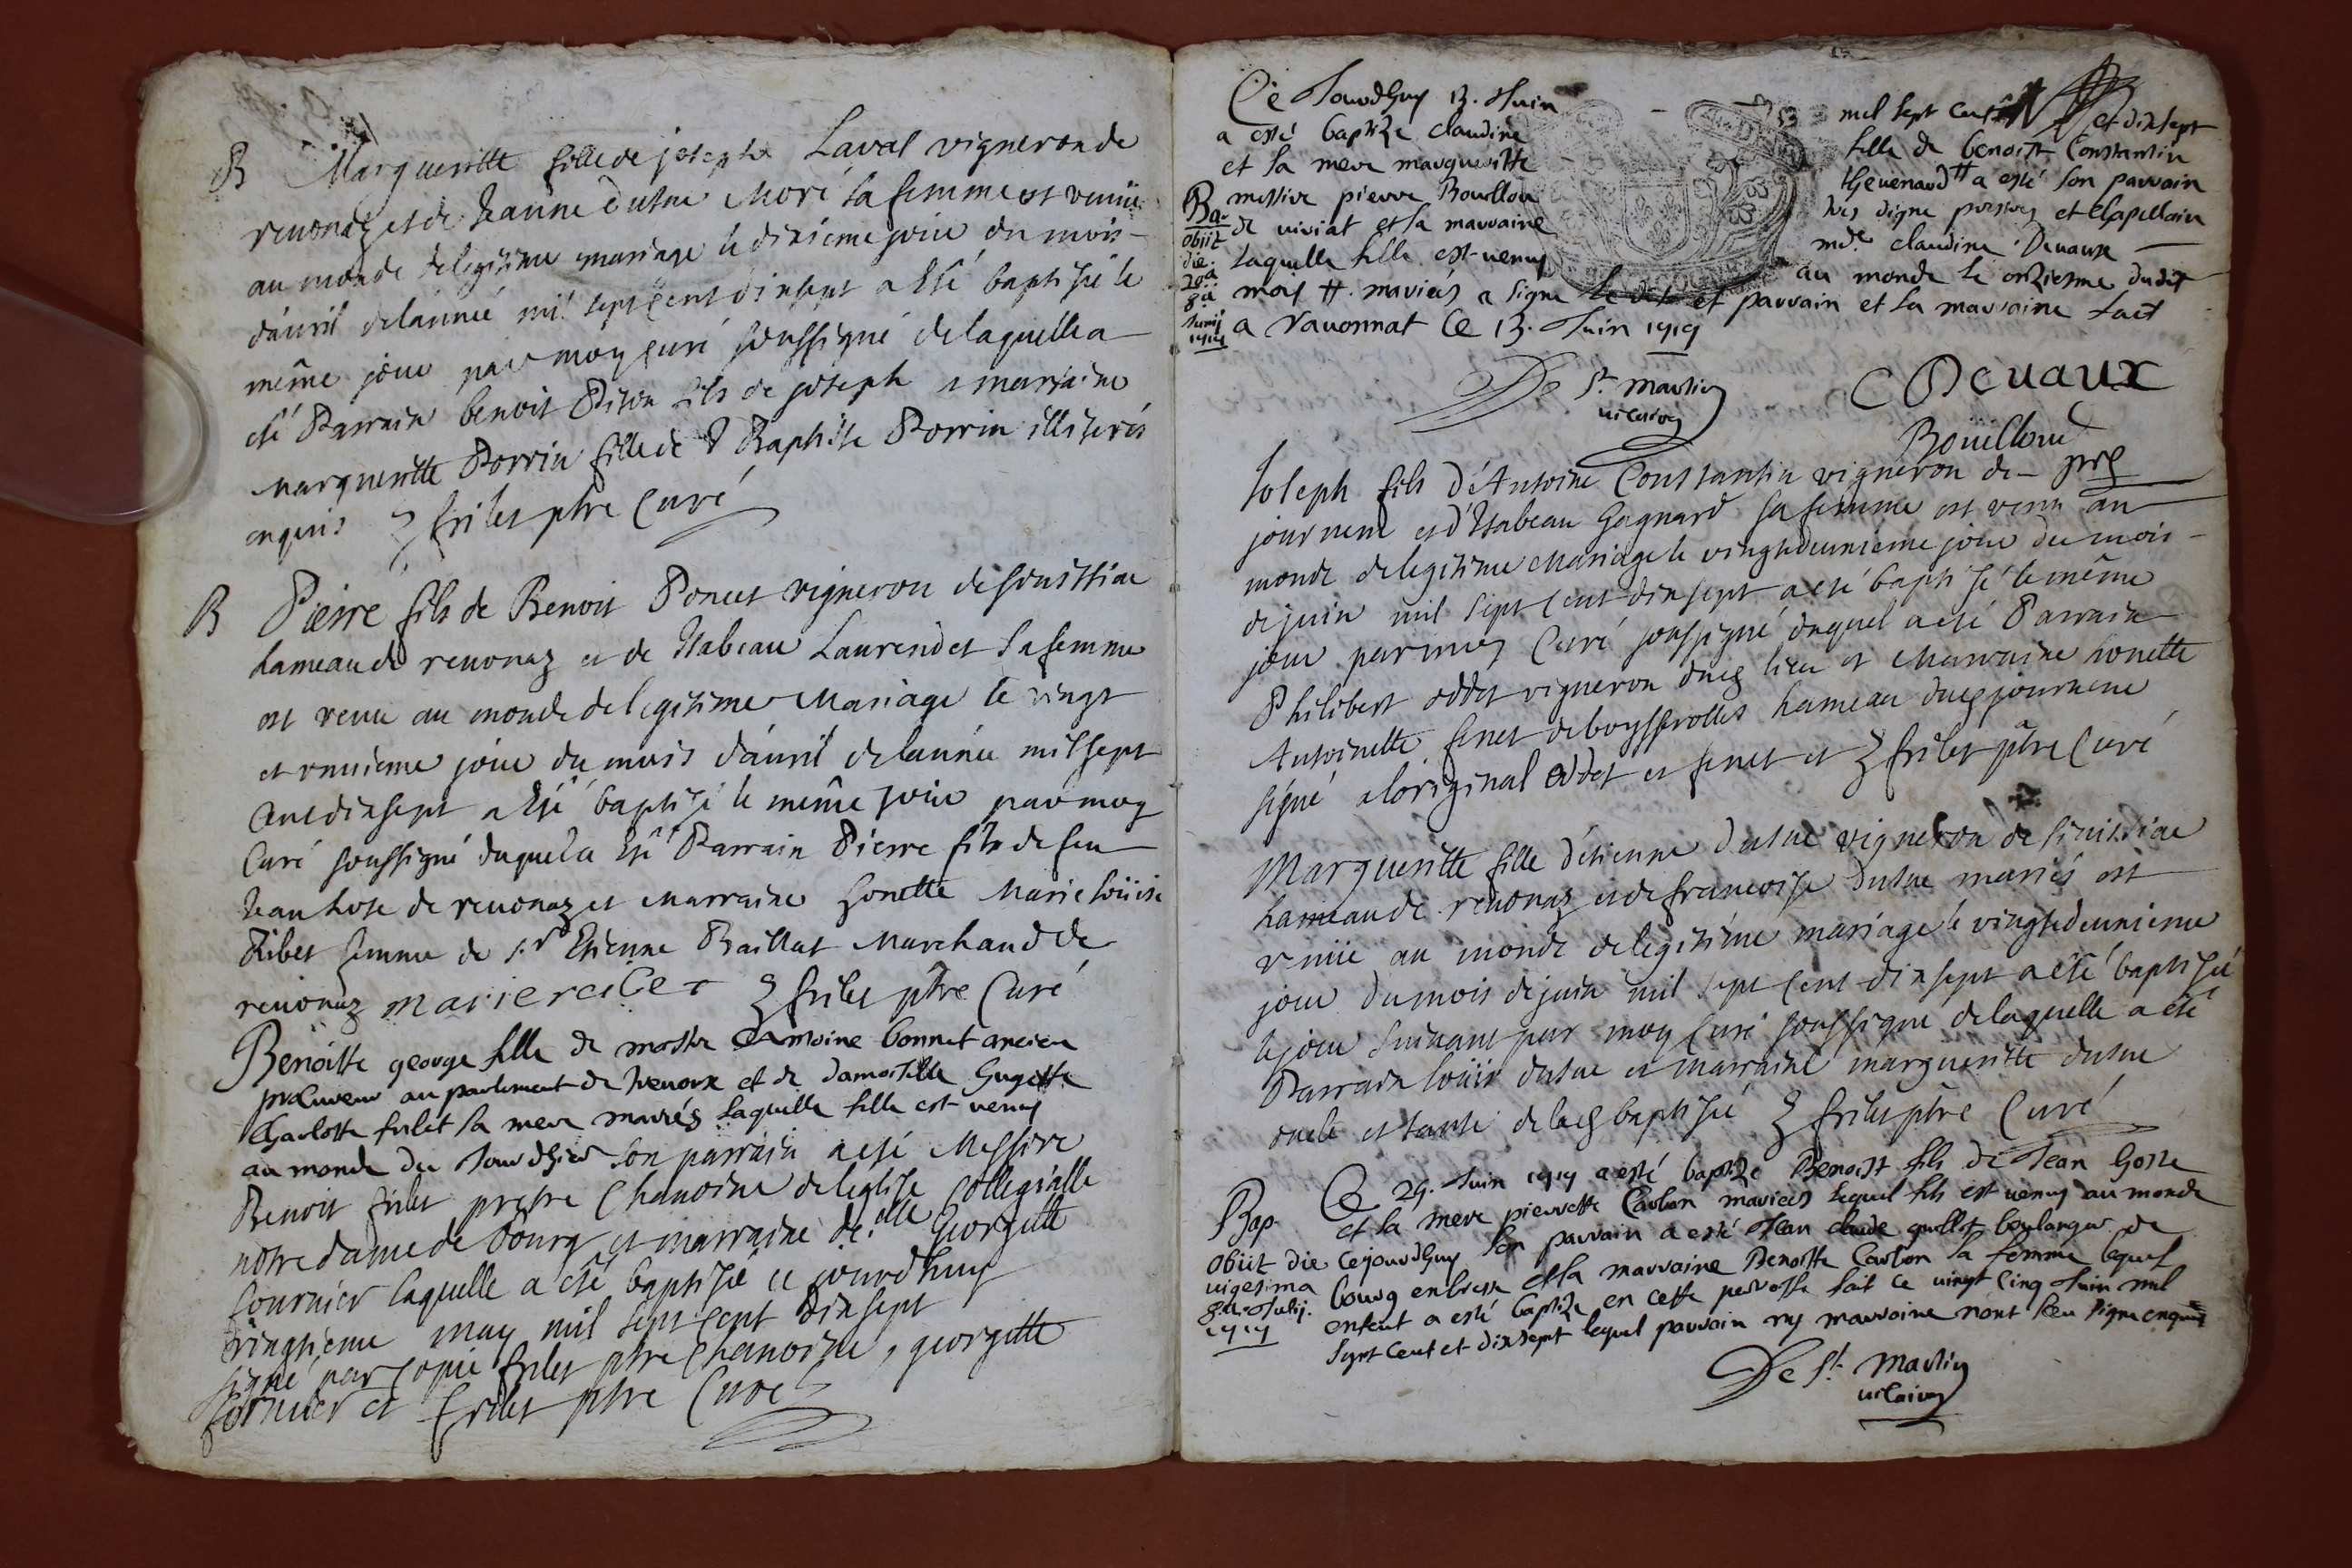 B Margueritte fille de joseph Laval vigneron de
revonaz et de Jeanne Dutne Moré sa femme est venüe
au monde de legitime mariage le dixieme jour du mois
d'avril de l'année mil sept cent dixsept a esté baptisée le
même jour par moy curé soussigné de laquelle a
esté Parrain benoit Piton fils de joseph et marraine
marguerite Perrin fille de Baptiste Perrin illiterés
enquis frilet ptre Curé
B Pierre fils de Benoit Poncet vigneron de soussiae
hameau de revonaz et de Isabeau Laurendet sa femme
est venu au monde de legitime Mariage le vingt
et unieme jour du mois d'avril de l'année mil sept
Cent dixsept a esté baptisé le même jour par moy
Curé soussigné duquel a esté Parrain Pierre fils de feu
Jean hose de revonaz et marraine honette Marie loüise
Ribet femme de s.r Etienne Baillat Marchand de
revonaz marie reibet frilet ptre Curé
Benoitte george fille de mostre antoine bonnet ancien
procureur au parlement de trevoux et de damoiselle Gugette
Charlotte frilet sa mere mariés laquelle fille est venuy
au monde du jourdhier son parrain a esté Messire
Benoit frilet prestre Chanoine de l'eglise Collegialle
notre dame de bourg et marraine de.elle Georgette
fournier laquelle a esté baptisée ce jourdhuy
vingtieme may mil sept cent dixsept
signé par copie frilet ptre Chanoine, georgette
fornier et frilet ptre Curé
Ce Jourdhuy 13. Juin mil sept cent et dixsept
a esté baptize claudine fille de benoist Constantin
et sa mere marguerite thevenard tt a esté son parrain
messire pierre Bouillou tres digne prestre et Chapellain
de viviat et sa marraine md.e claudine Devaux
laquelle fille est venuy au monde le onziesme dudit
mois tt. mariés a signé le dit et parrain et la marraine fait
a ravonnat Ce 13. Juin 1717
Ba.
Obiit
die
20a
8a
Junij
1717
De St. Martin
vicaire
C Devaux
Boüilloud
pre
Joseph fils d'Antoine Constantin vigneron de
journent et d'Isabeau Gagnard sa femme est venu au
monde de legitime Mariage le vingtdeunieme jour du mois
de juin mil sept Cent dixsept a esté baptisé le même
jour par moy Curé soussigné duquel a esté Parrain
Philibert oddet vigneron dud lieu et Marraine honette
Antoinette fenet de boyserolles hameau dud journent
signé a loriginal oddet et fenet et frilet ptre Curé
Marguerite fille d'etienne dutne vigneron de soissiae
hameau de revonaz et de francoise dutne mariés est
venüe au monde de legitime mariage le vingtdeunieme
jour du mois de juin mil sept Cent dixsept a esté baptisée
le jour suivant par moy Curé soussigné de laquelle a esté
Parrain loüis dutne et marraine marguerite dutne
oncle et tante de lad baptisée frilet ptre Curé
Ce 25. Juin 1717 a esté baptizé Benoist fils de Jean Gosse
et sa mere pierrette Carbon mariees lequel fils est venuy au monde
cejourdhuy son parrain a esté Jean claude guillot boulanger de
bourg en bresse et sa marraine Benoitte Carbon sa femme lequel
enfant a esté baptizé en cette perroisse fait ce vingt Cinq Juin mil
Sept Cent et dixsept lequel parrain ny marraine n'ont sceu signe enquis
Bap.
Obiit die
vigesima
8a. Julij.
1717
De St. Martin
vicaire